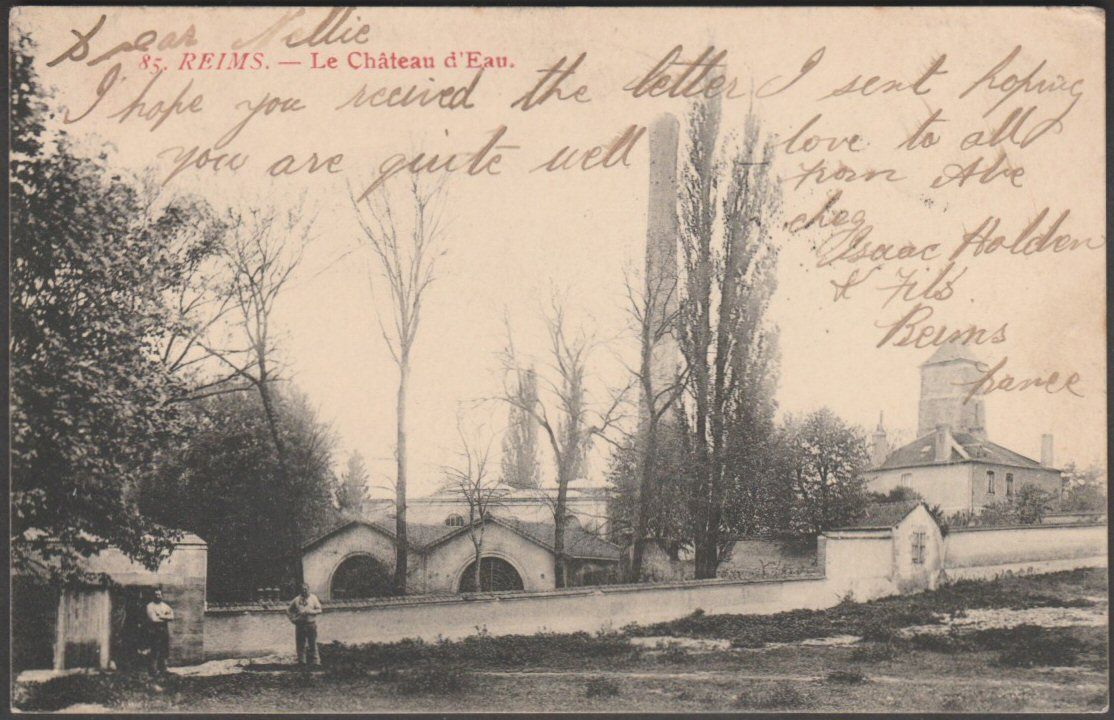 Dear Nellie
85. REIMS. — Le Château d'Eau.
I hope you received the letter I sent hoping
you are quite well love to all
from Abe
chez
Isaac Holden
& Fils
Reims
france